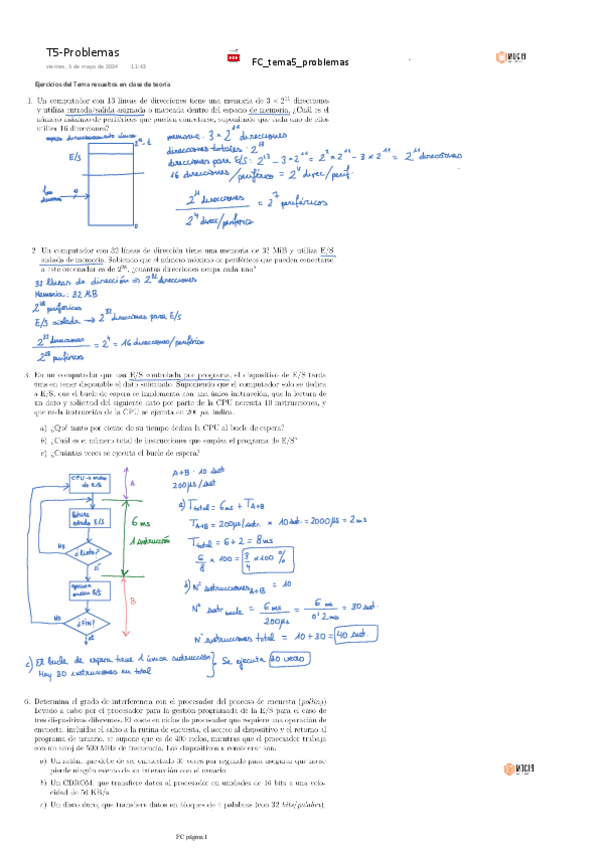 T5-Problemas
viernes, 3 de mayo de 2024 11:42
FC_tema5_problemas
Ejercicios del Tema resueltos en clase de teoría
1. Un computador con 13 líneas de direcciones tiene una memoria de 3 × 2¹¹ direcciones
y utiliza entrada/salida asignada o mapeada dentro del espacio de memoria. ¿Cuál es el
número máximo de periféricos que pueden conectarse, suponiendo que cada uno de ellos
utiliza 16 direcciones?
E/S
memoria: 3 × 2¹¹ direcciones
direcciones totales: 2¹³
direcciones para E/S: 2¹³ - 3×2¹¹ = 2² × 2¹¹ - 3 × 2¹¹ = 2¹¹ direcciones
16 direcciones/periférico = 2⁴ direc/perif.
2¹¹ direcciones
2⁴ direc/periférico
= 2⁷ periféricos
2. Un computador con 32 líneas de dirección tiene una memoria de 32 MiB y utiliza E/S
aislada de memoria. Sabiendo que el número máximo de periféricos que pueden conectarse
a este ordenador es de 2²⁸, ¿cuántas direcciones ocupa cada uno?
32 líneas de dirección ⇒ 2³² direcciones
Memoria: 32 MB
2²⁸ periféricos
E/S aislada → 2³² direcciones para E/S
2³² direcciones
2²⁸ periféricos
= 2⁴ = 16 direcciones/periférico
3. En un computador que usa E/S controlada por programa, el dispositivo de E/S tarda
6 ms en tener disponible el dato solicitado. Suponiendo que el computador solo se dedica
a E/S, que el bucle de espera se implementa con una única instrucción, que la lectura de
un dato y solicitud del siguiente dato por parte de la CPU necesita 10 instrucciones, y
que cada instrucción de la CPU se ejecuta en 200 μs, indica:
a) ¿Qué tanto por ciento de su tiempo dedica la CPU al bucle de espera?
b) ¿Cuál es el número total de instrucciones que emplea el programa de E/S?
c) ¿Cuántas veces se ejecuta el bucle de espera?
A
estado E/S
No
¿listo?
sí
6 ms
1 instrucción
B
No
¿FIN?
sí
A+B = 10 inst
200μs/inst
a) Ttotal = 6ms + TA+B
TA+B = 200μs/instr. × 10inst = 2000μs = 2ms
Ttotal = 6+2 = 8ms
6/8 × 100 = 3/4 ×100 %
b) Nº instruccionesA+B = 10
Nº instr bucle = 6 ms/200μs = 6 ms/0'2ms = 30 inst.
Nº instrucciones total = 10 + 30 = 40 inst.
c) El bucle de espera tiene 1 única instrucción
Hay 30 instrucciones en total
Se ejecuta 30 veces
6. Determina el grado de interferencia con el procesador del proceso de encuesta (polling)
llevado a cabo por el procesador para la gestión programada de la E/S para el caso de
tres dispositivos diferentes. El coste en ciclos de procesador que requiere una operación de
encuesta, incluidos el salto a la rutina de encuesta, el acceso al dispositivo y el retorno al
programa de usuario, se supone que es de 400 ciclos, mientras que el procesador trabaja
con un reloj de 500 MHz de frecuencia. Los dispositivos a considerar son:
a) Un ratón, que debe de ser encuestado 30 veces por segundo para asegurar que no se
pierde ningún evento de su interacción con el usuario.
b) Un CDROM, que transfiere datos al procesador en unidades de 16 bits a una velo-
cidad de 50 KB/s
c) Un disco duro, que transfiere datos en bloques de 4 palabras (con 32 bits/palabra),
FC página 1